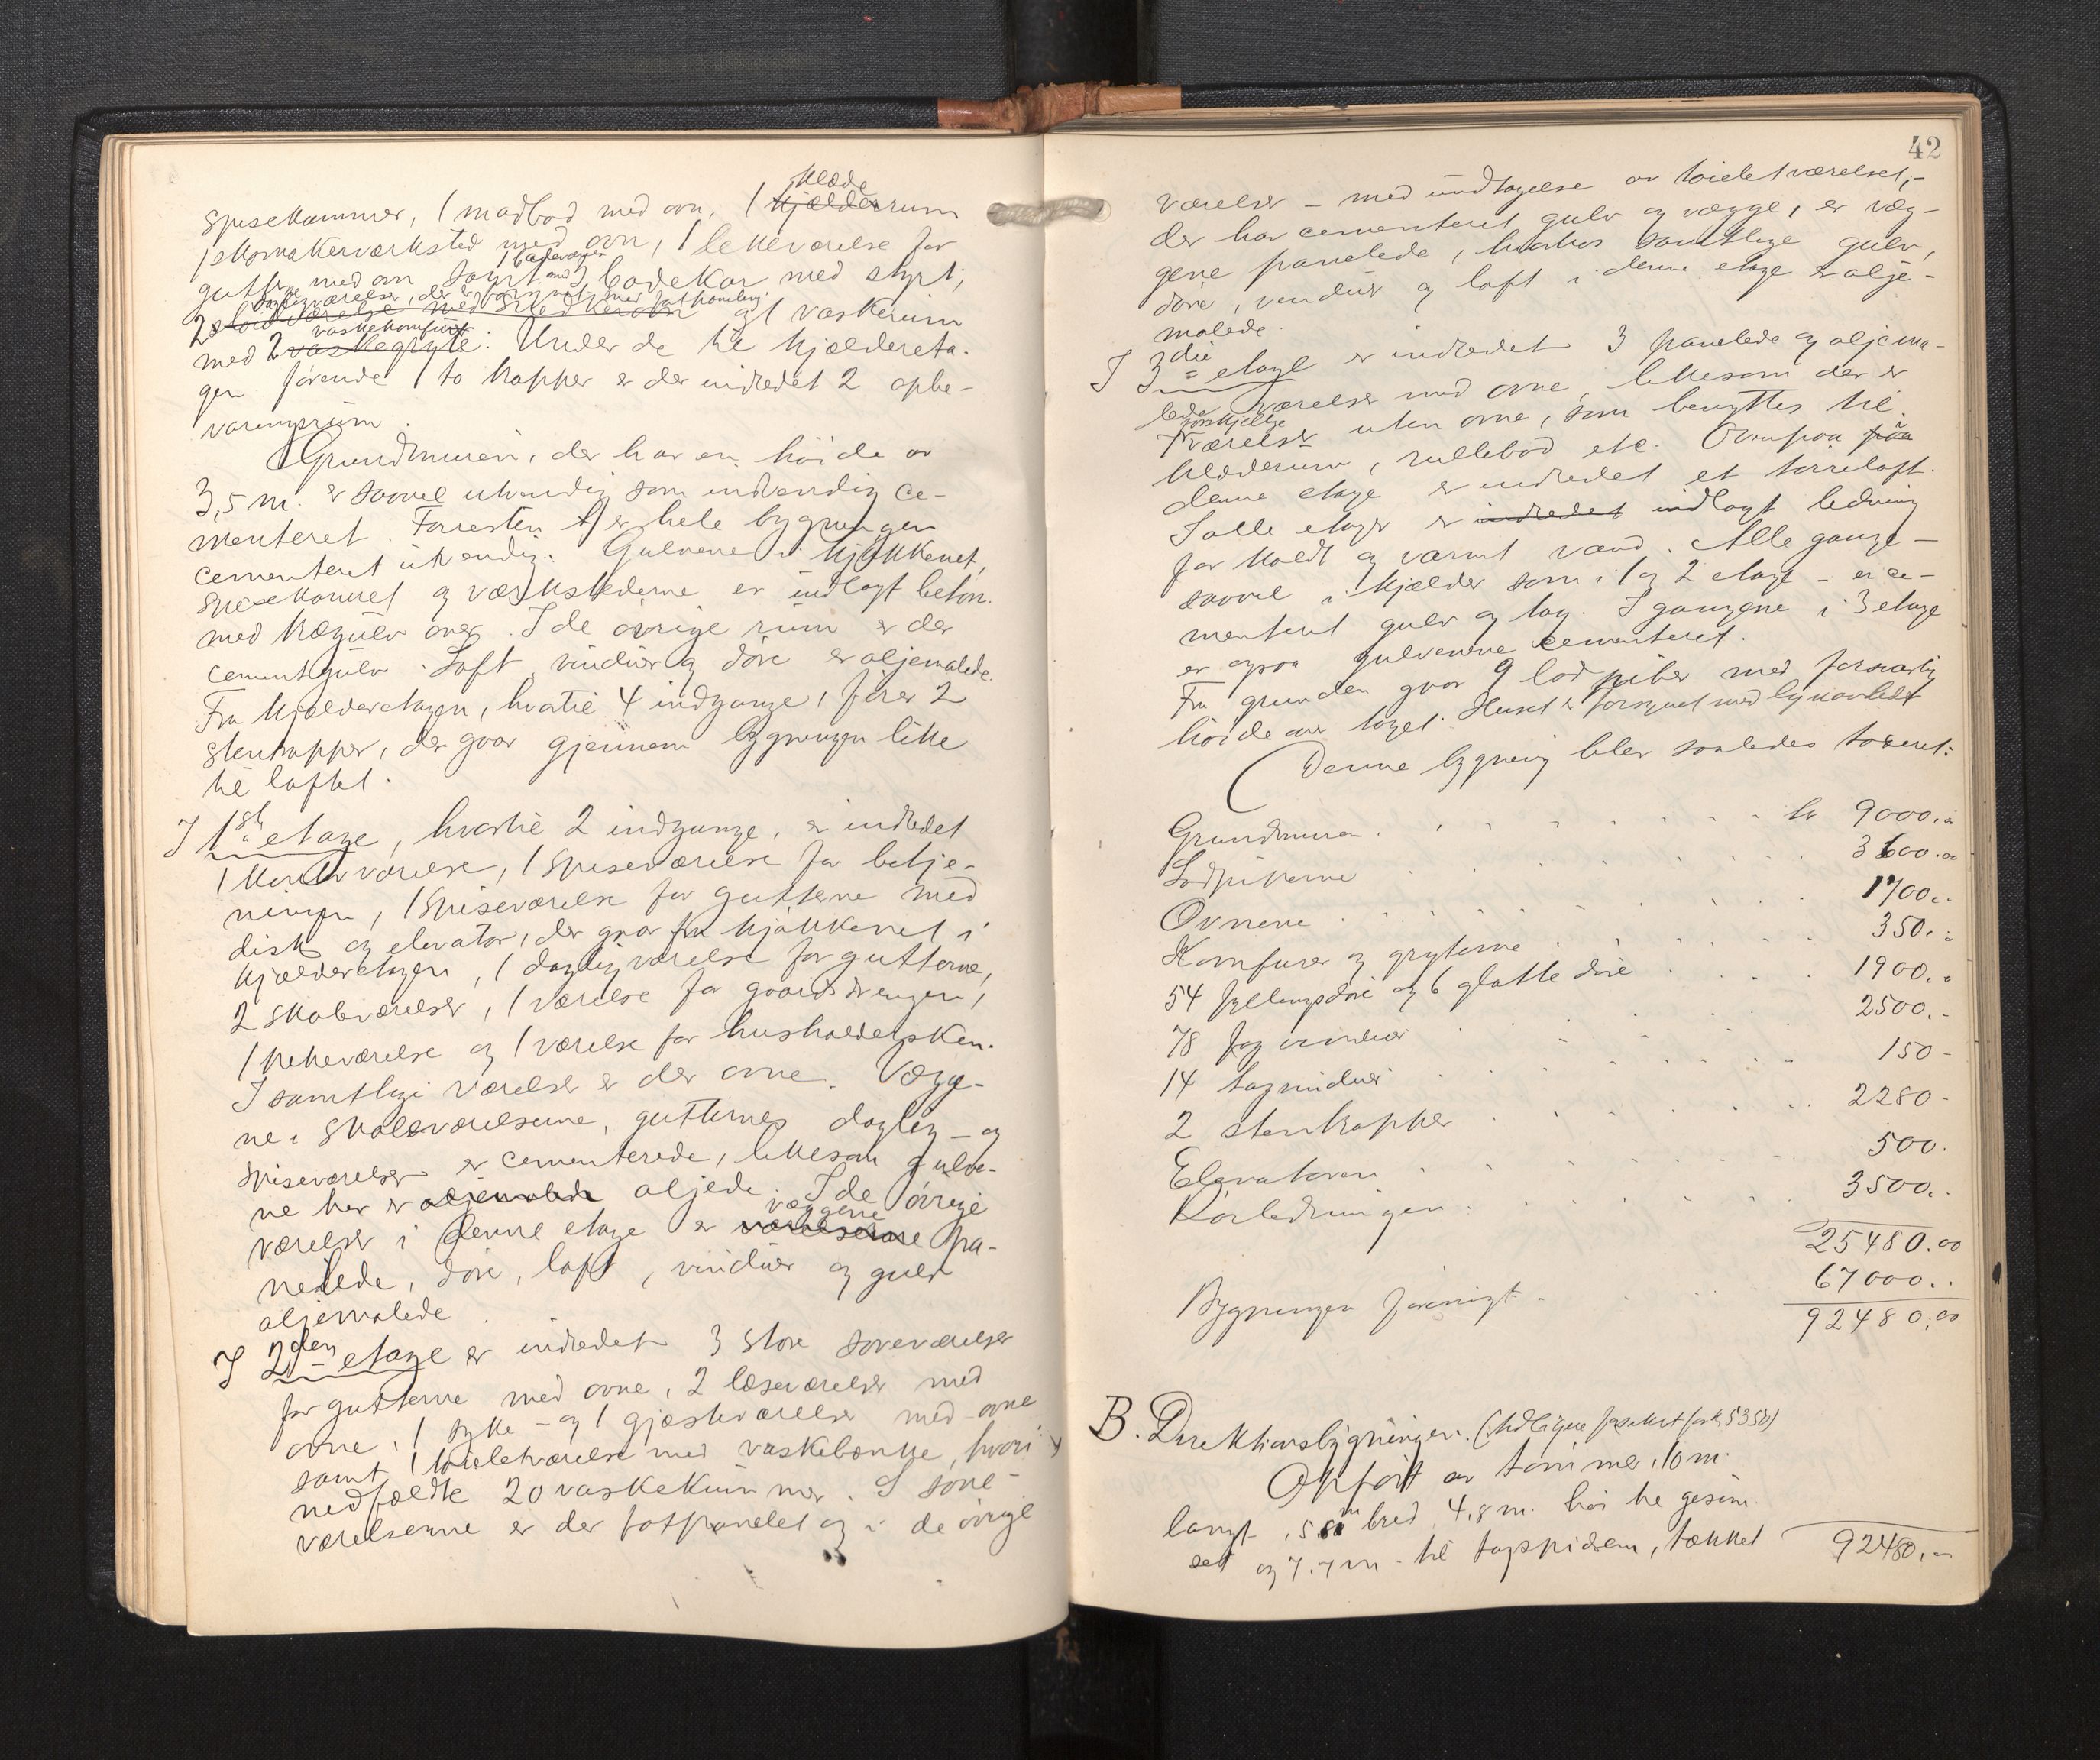 Spisekammer, 1 madbod med ovn, 1 kjælderrum klæde
1 skomakerværksted med ovn, 1 lekeværelse for
guttene med ovn samt 1 badeværelse med 3 badekar med styrt,
2 og 1 vaskerum
med 2 vaskegryte vaskekomfyr. Under de til kjældereta-
gen førende to trapper er der indredet 2 opbe-
varingsrum.
Grundmuren, der har en høide av
3,5 m. er saavel utvendig som indvendig ce-
menteret. Forresten er hele bygningen
cementeret utvendig. Gulvene i kjøkkenet,
spisekammet og værkstederne er indlagt beton
med trægulv over. I de øvrige rum er der
cementgulv. Loft, vinduer og døre er oljemalede.
Fra kjælderetagen, hvortil 4 indgange, fører 2
stentrapper, der gaar gjennem bygningen like
til loftet.
I 1ste etage, hvortil 2 indgange, er indredet
1 kontorværelse, 1 spiseværelse for betje-
ningen, 1 spiseværelse for guttene med
disk og elevator, der gaar fra kjøkkenet i
kjælderetagen, 1 dagligværelse for gutterne,
2 skoleværelser, 1 værelse for gaardsdrengen,
1 pikeværelse og 1 værelse for husholdersken.
I samtlige værelser er der ovne. Vægge-
ne i skoleværelserne, gutternes daglig- og
spiseværelser er cementerede, likesom gulve-
ne her er oljemalede oljede. I de øvrige
værelser i denne etage er værelserne væggene pa-
nelede, døre, loft, vinduer og gulv
oljemalede.
I 2den etage er indredet 3 store soveværelser
for gutterne med ovne, 2 læseværelser med
ovne, 1 syke- og 1 gjæsteværelse med ovne
samt 1 toiletværelse med vaskebænke, hvori
nedfældte 20 vaskekummer. I sove-
værelserne er der fotpanelet og i de øvrige
42
værelser - med undtagelse av toiletværelset,-
der har cementeret gulv og vægge, er væg-
gene panelede, hvorhos samtlige gulv,
døre, vinduer og loft i denne etage er olje-
malede.
I 3die etage er indredet 3 panelede og oljema-
lede værelser med ovne, likesom der er
7 forskjellige værelser uten ovne, som benyttes til
klæderum, rullebod etc. Ovenpaa paa
denne etage er indredet et tørreloft.
I alle etager er indredet indlagt ledning
for koldt og varmt vand. Alle gange -
saavel i kjælder som i 1 og 2 etage - er ce-
menteret gulv og tag. I gangene i 3 etage
er ogsaa gulvene cementeret.
Fra grunden gaar 9 lodpiber med forsvarlig
høide over taget. Huset er forsynet med lynavleder
Denne bygning blev saaledes taxeret:
Grundmuren . . . . . kr 9000.00
Lodpiperne . . . . . 3600.00
Ovnene . . . . . 1700..
Komfurer og gryterne . . . . 350..
54 fyllingsdøre og 6 glatte døre . . . . 1900..
78 fag vinduer . . . . 2500.-
14 tagvinduer . . . . 150-
2 stentrapper . . . . 2280-
Elevatoren . . . . 500.
Rørledningen . . . . 3500..
25480.00
Bygningen forøvrigt . . . 67000..
92480.00
B. Direktionsbygningen. (tidligere forsikret for kr 5350)
Opført av tømmer, 10 m.
langt, 5.8 m bred, 4,8 m. høi til gesim
set og 7.7 m til tagspidsen, tækket
92480.-